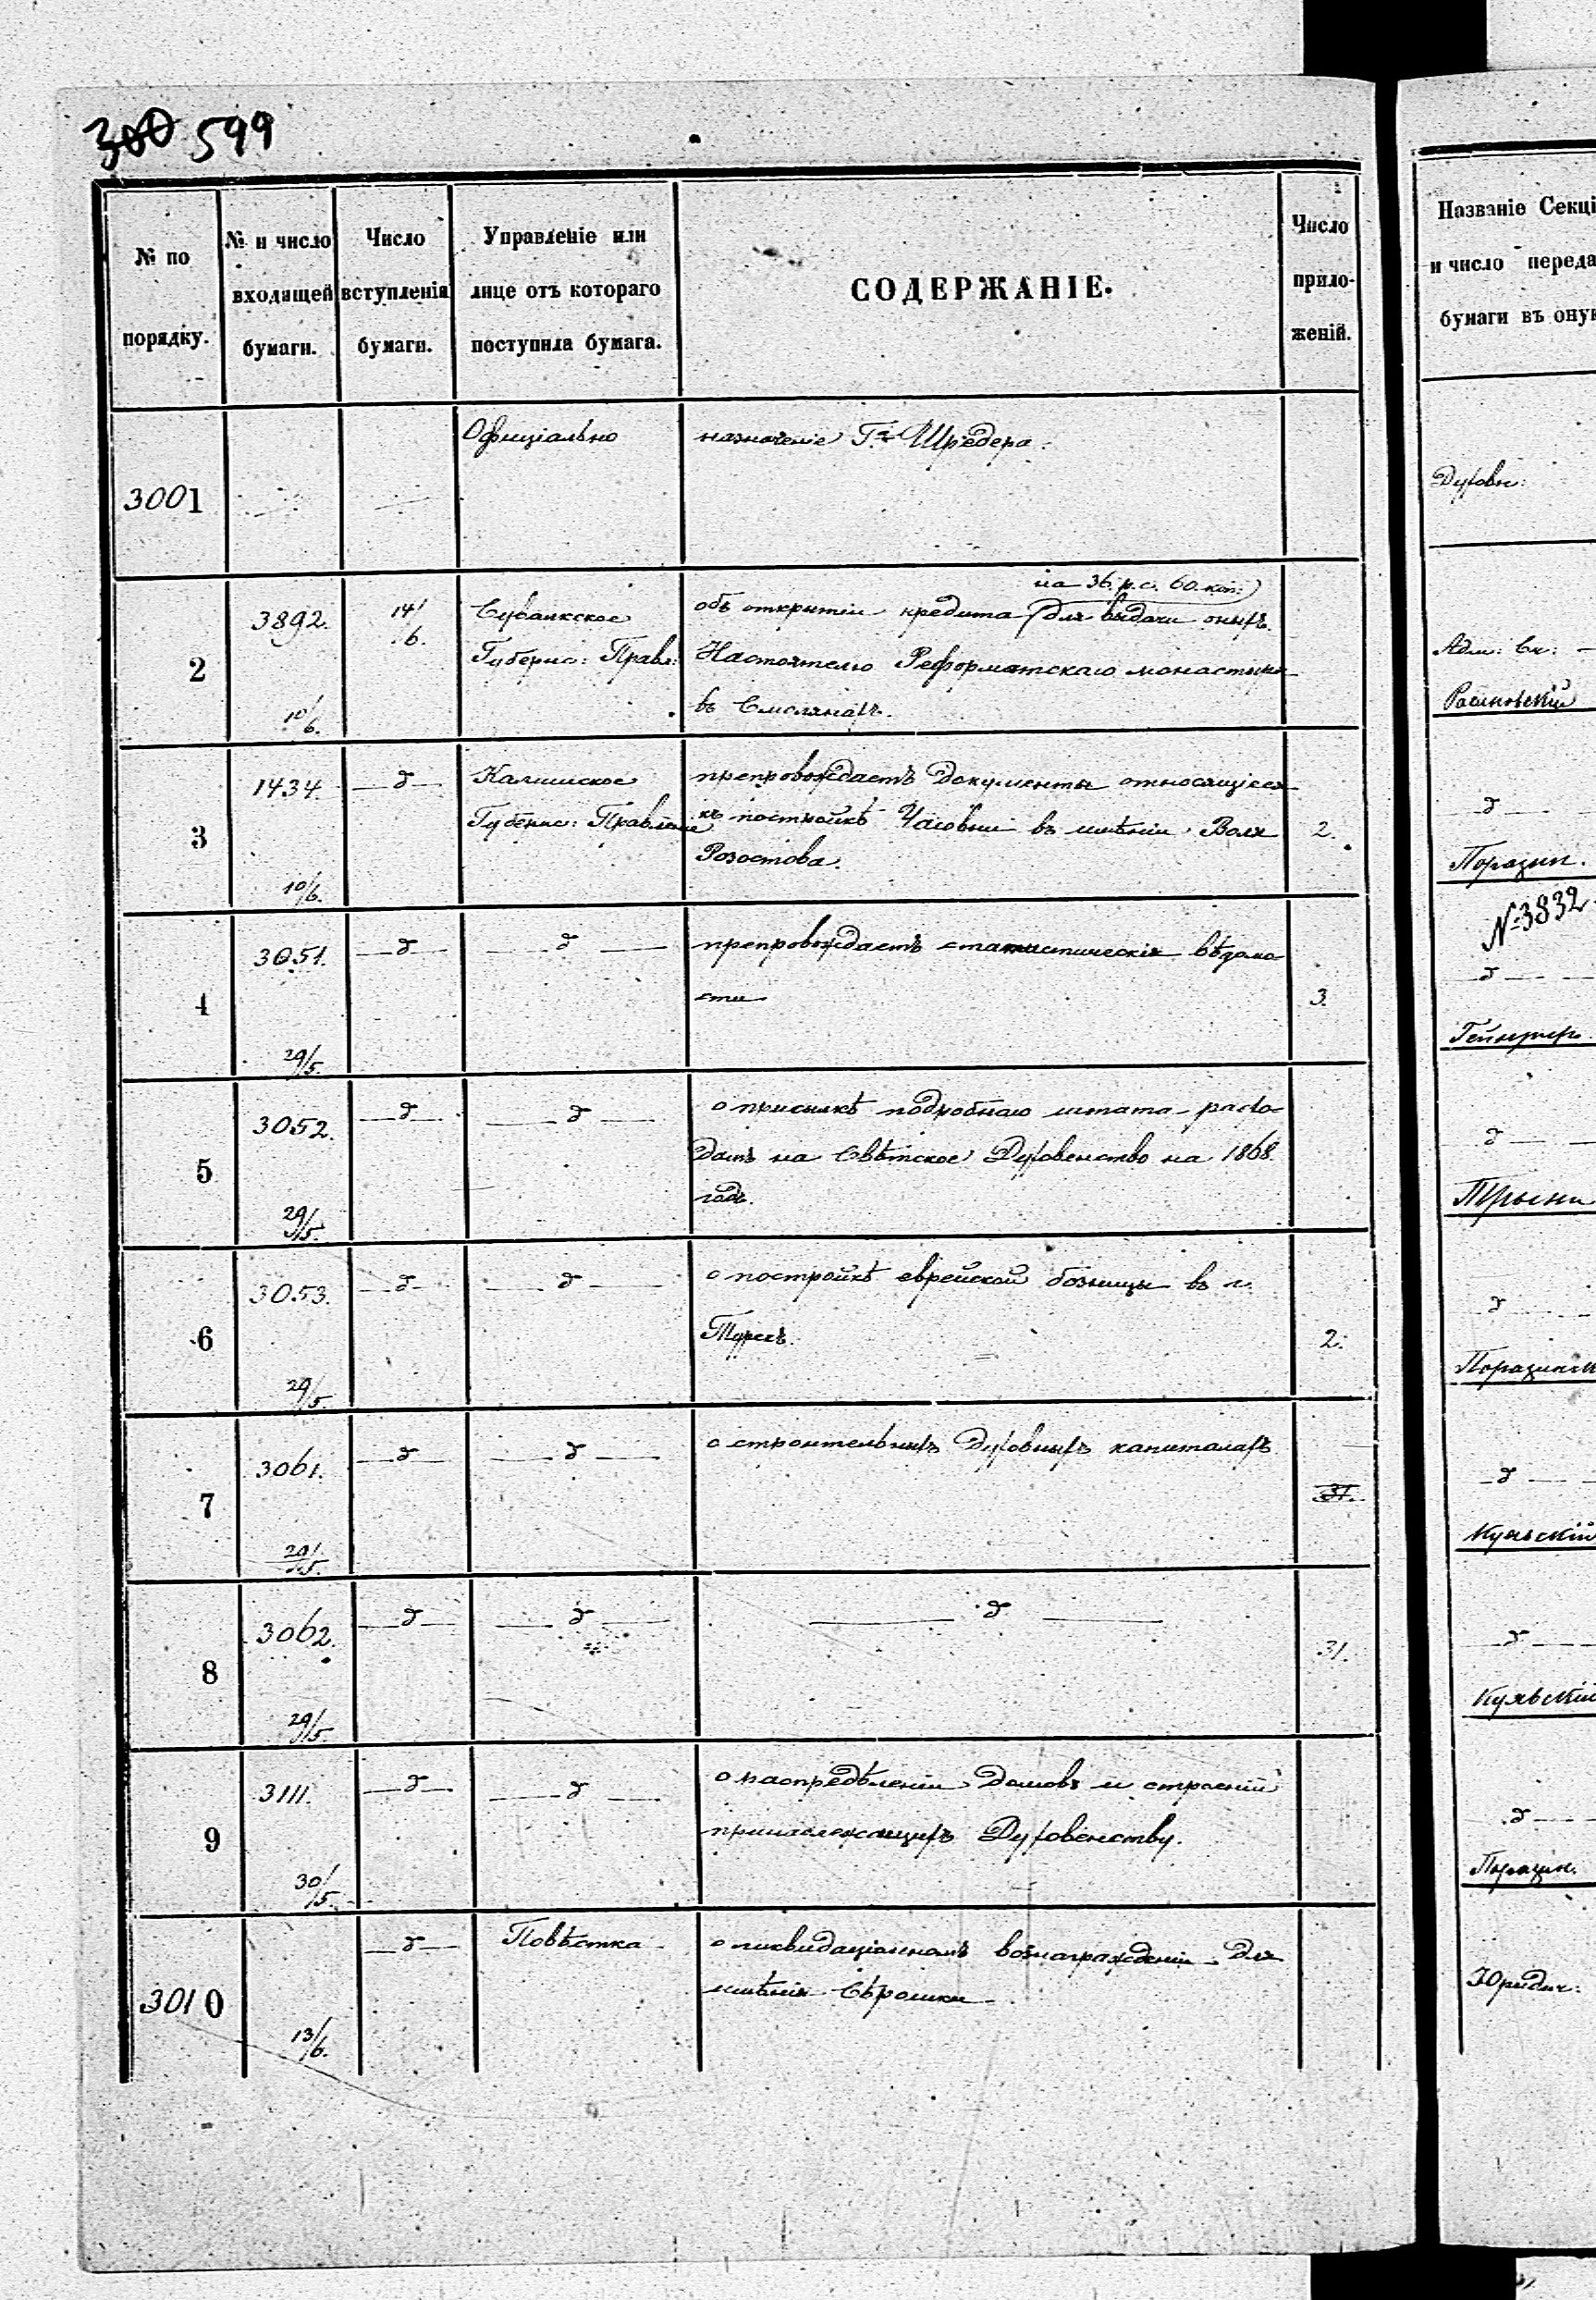 300 599
№ по порядку.
№ и число входящей бумаги.
Число вступленія бумаги.
Управленіе или лице отъ котораго поступила бумага.
СОДЕРЖАНІЕ.
Число прило-женій.
Названіе Секці
и число переда
бумаги въ ону
3001
Официіально
назначеніе Г. Шредера.
Духовн:
2
3892.
10/6.
14/6.
Сувалкское
Губернс: Правл:
на 36. р. с. 60. коп:)
объ открытіи кредита (для выдачи оныхъ
Настоятелю Реформатскаго монастыря
въ Смолянахъ.
Адм: Ск: —
3
1434
10/6.
— д —
Калишское
Губернс: Правленіе
препровождаетъ документы относящіеся
къ постройкѣ Часовни въ имѣніи Воля
Розостова
2.
— д —
Поразин.
№ 3832
4
3051.
29/5.
— д —
— д —
препровождаетъ статистическія вѣдомо-
сти
3.
— д —
5
3052.
29/5.
— д —
— д —
о присылкѣ подробнаго штата расхо-
дамъ на Свѣтское Духовенство на 1868.
годъ.
— д —
6
3053.
29/5.
— д —
— д —
о постройкѣ еврейской божницы въ г.
Турекъ.
2.
— д —
Поразинск
7
3061.
29/5.
— д —
— д —
о строительныхъ Духовныхъ капиталахъ
31.
— д —
Куявскій
8
3062.
29/5.
— д —
— д —
— д —
31.
— д —
Куявскій
9
3111.
30/5.
— д —
— д —
о распредѣленіи домовъ и строеній
принадлежащихъ Духовенству.
— д —
Поразин.
3010
13/6.
— д —
Повѣстка
о ликвидаціонномъ вознагражденіи для
имѣнія Сѣрошки
Юридич: